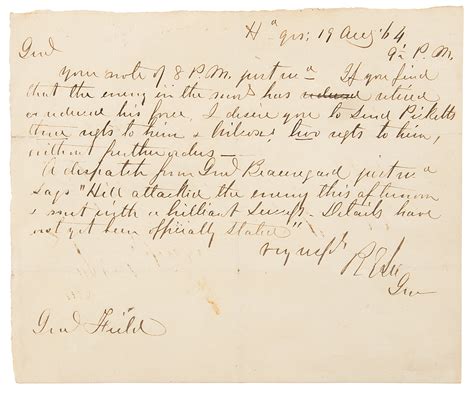 Hd qrs: 19 Aug '64
9½ P.M.
Genl
your note of 8 P.M. just recd If you find
that the enemy in the has reduced retired
or reduced his force, I desire you to send Picketts
three regts to him & Wilcox two regts to him,
without further orders—
A dispatch from Genl Beauregard just recd
says "Hill attacked the enemy this afternoon
& met with a brilliant success. Details have
not yet been officially stated"
very respy
R E Lee
Genl
Genl Field